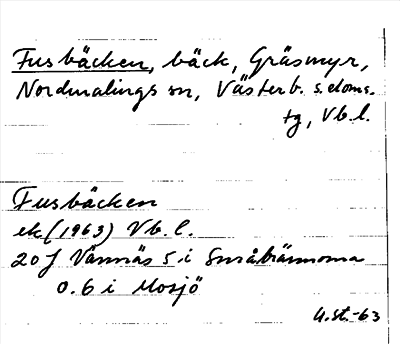 Fusbäcken, bäck, Gräsmyr,
Nordmalings sn, Västerb. s. doms.
tg, Vb. l.
Fusbäcken
ek (1963) Vb. l.
20 J Vännäs 5 i Småtärnorna
0.6 i Mosjö
U.St.-63